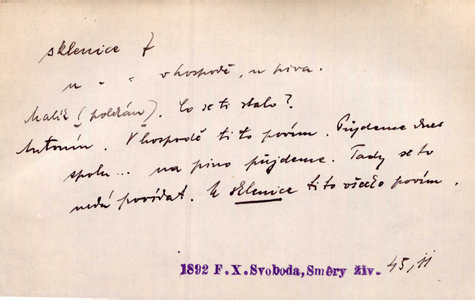 sklenice f
u " " v hospodě, u piva.
Malík (polekán). Co se ti stalo?
Antonín. V hospodě ti to povím. Půjdeme dnes
spolu... na pivo půjdeme. Tady se to
nedá povídat. U sklenice ti to všecko povím.
1892 F.X.Svoboda, Směry živ. 45, II